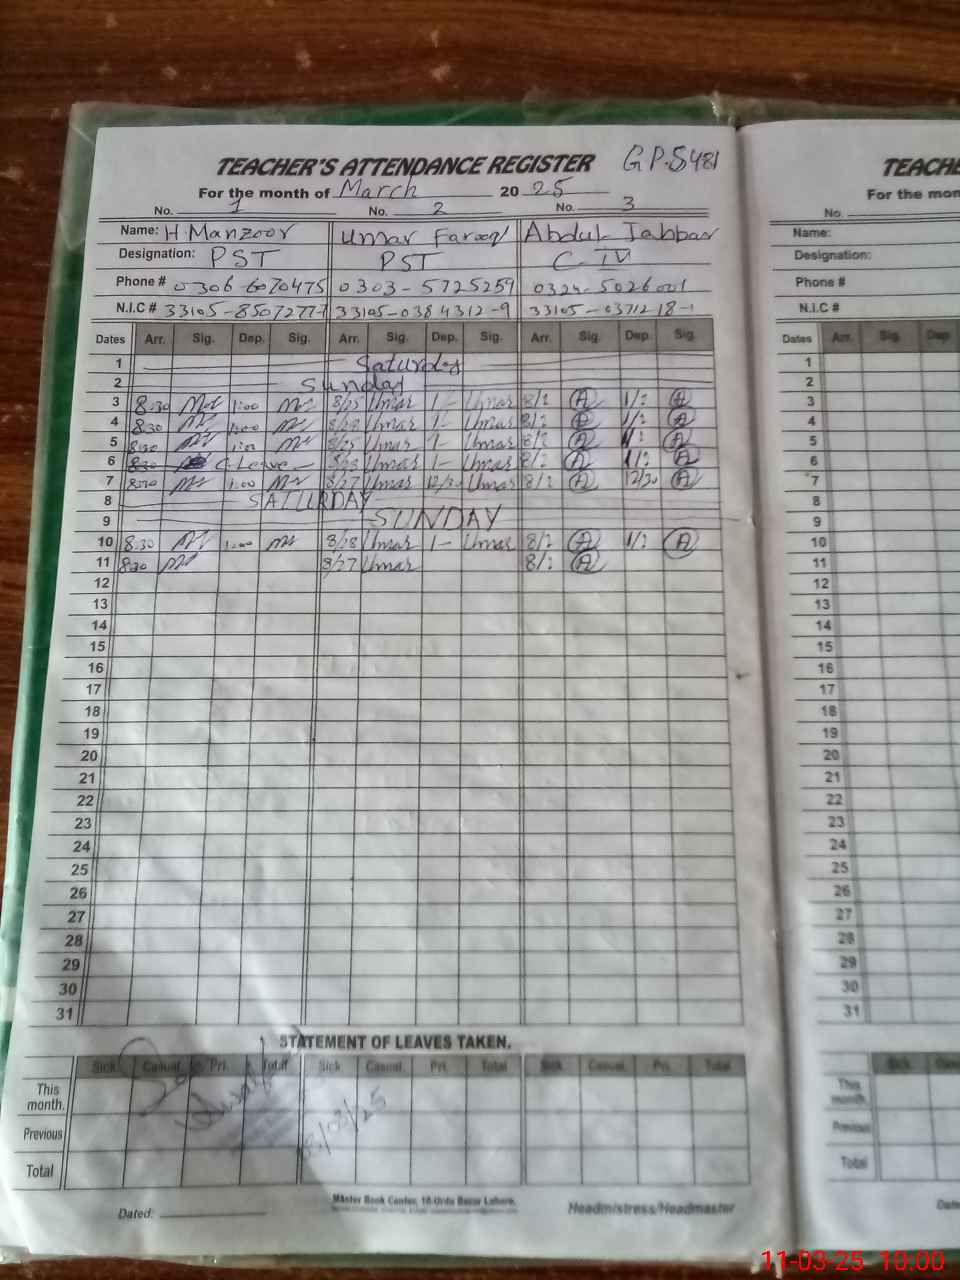 TEACHER'S ATTENDANCE REGISTER G.P.S 481
For the month of March 2025
No. 1 No. 2 No. 3
Name: H. Manzoor Umar Farooq Abdul Jabbar
Designation: PST PST C-IV
Phone # 0306-6070475 0303-5725259 0324-5026001
N.I.C # 33105-8507277-1 33105-0384312-9 33105-0371218-1
Dates Arr. Sig. Dep. Sig. Arr. Sig. Dep. Sig. Arr. Sig. Dep. Sig.
1 Saturday
2 Sunday
3 8:30 1:00 8/25 Umar 1- Umar 8/2 A 1/2 A
4 8:30 1:00 8/28 Umar 1- Umar 8/2 A 1/2 A
5 8:30 1:00 8/25 Umar 1- Umar 8/2 A 1/2 A
6 8:30 C. Leave 8/28 Umar 1- Umar 8/2 A 1/2 A
7 8:30 1:00 8/27 Umar 12/30 Umar 8/2 A 12/30 A
8 SATURDAY
9 SUNDAY
10 8:30 1:00 8/28 Umar 1- Umar 8/2 A 1/2 A
11 8:30 8/27 Umar 8/2 A
12
13
14
15
16
17
18
19
20
21
22
23
24
25
26
27
28
29
30
31
STATEMENT OF LEAVES TAKEN.
Sick Casual Pri. Total Sick Casual Pri. Total Sick Casual Pri. Total
This month.
Previous
Total
Master Book Center, 16-Urdu Bazar Lahore.
Dated: Headmistress/Headmaster
TEACHE
For the mon
No.
Name:
Designation:
Phone #
N.I.C #
Dates Arr. Sig. Dep.
1
2
3
4
5
6
7
8
9
10
11
12
13
14
15
16
17
18
19
20
21
22
23
24
25
26
27
28
29
30
31
Sick
This month.
Previous
Total
11-03-25 10:00